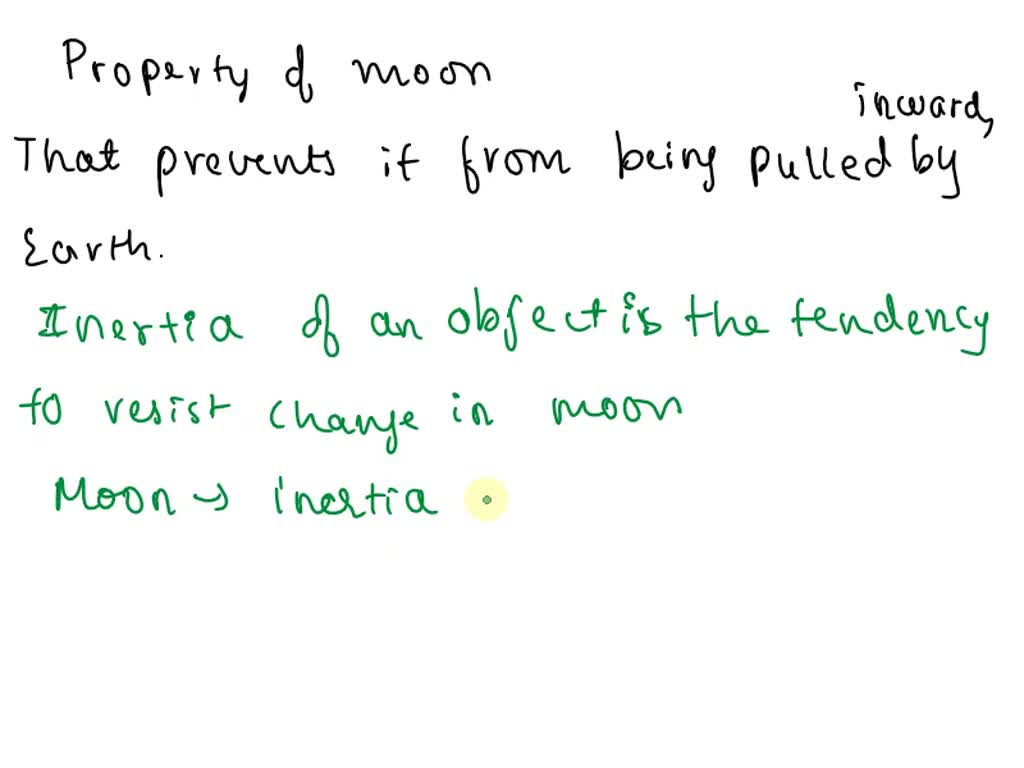 Property of moon
inward,
That prevents it from being pulled by
Earth.
Inertia of an object is the tendency
to resist change in moon
Moon → inertia